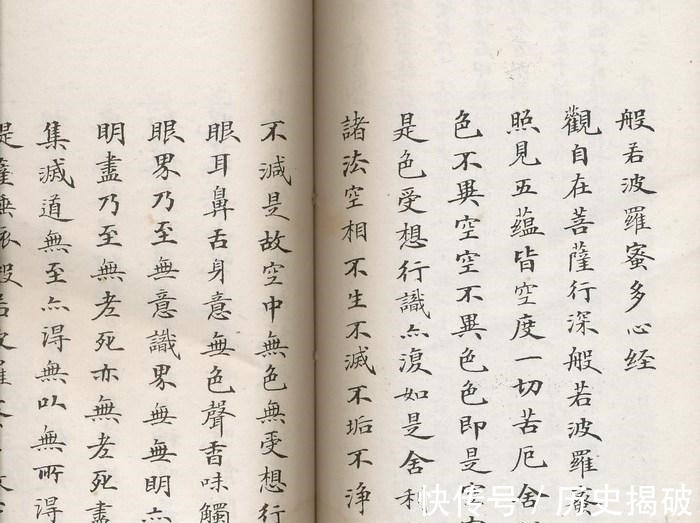 般若波羅蜜多心经
觀自在菩薩行深般若波羅蜜
照見五蕴皆空度一切苦厄舍
色不異空空不異色色即是空
是色受想行識亦復如是舍利
諸法空相不生不滅不垢不浄
不減是故空中無色無受想行
眼耳鼻舌身意無色聲香味觸
眼界乃至無意識界無無明亦
明盡乃至無老死亦無老死盡
集滅道無至亦得無以無所得
快传号 / 历史揭破